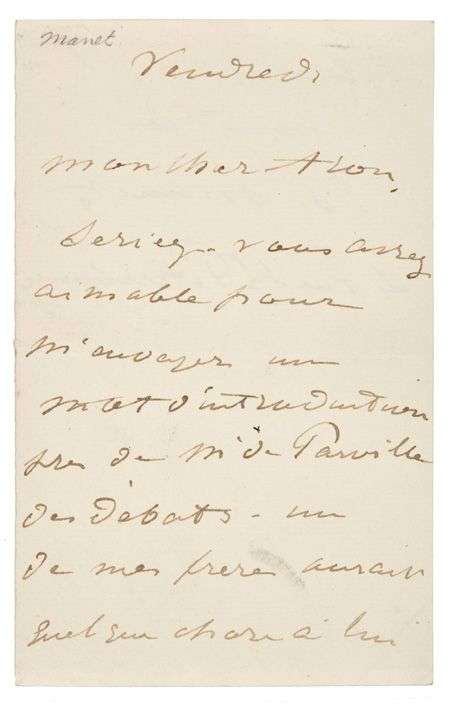 Manet
Vendredi
Mon cher Aron,
Seriez-vous assez
aimable pour
m'envoyer un
mot d'introduction
près de Mr de Parville
des débats - un
de mes frere aurait
quelque chose à lui